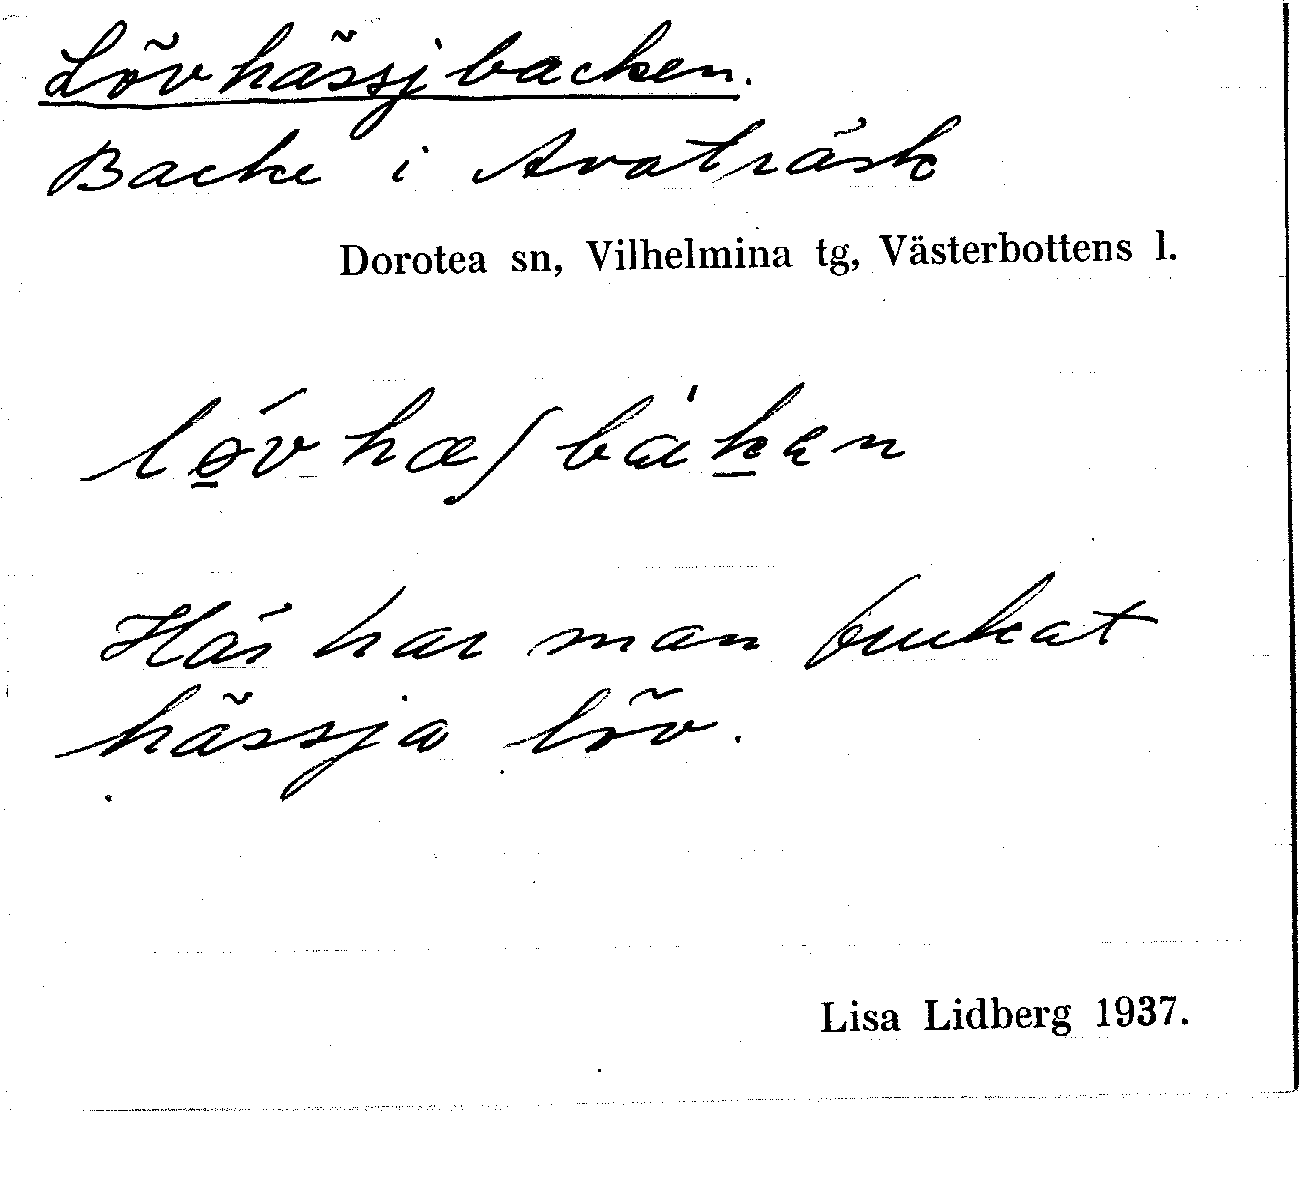 Lövhässjbacken.
Backe i Avaträsk
Dorotea sn, Vilhelmina tg, Västerbottens l.
lǿ̱vhæʃbàḵen
Här har man brukat
hässja löv.
Lisa Lidberg 1937.